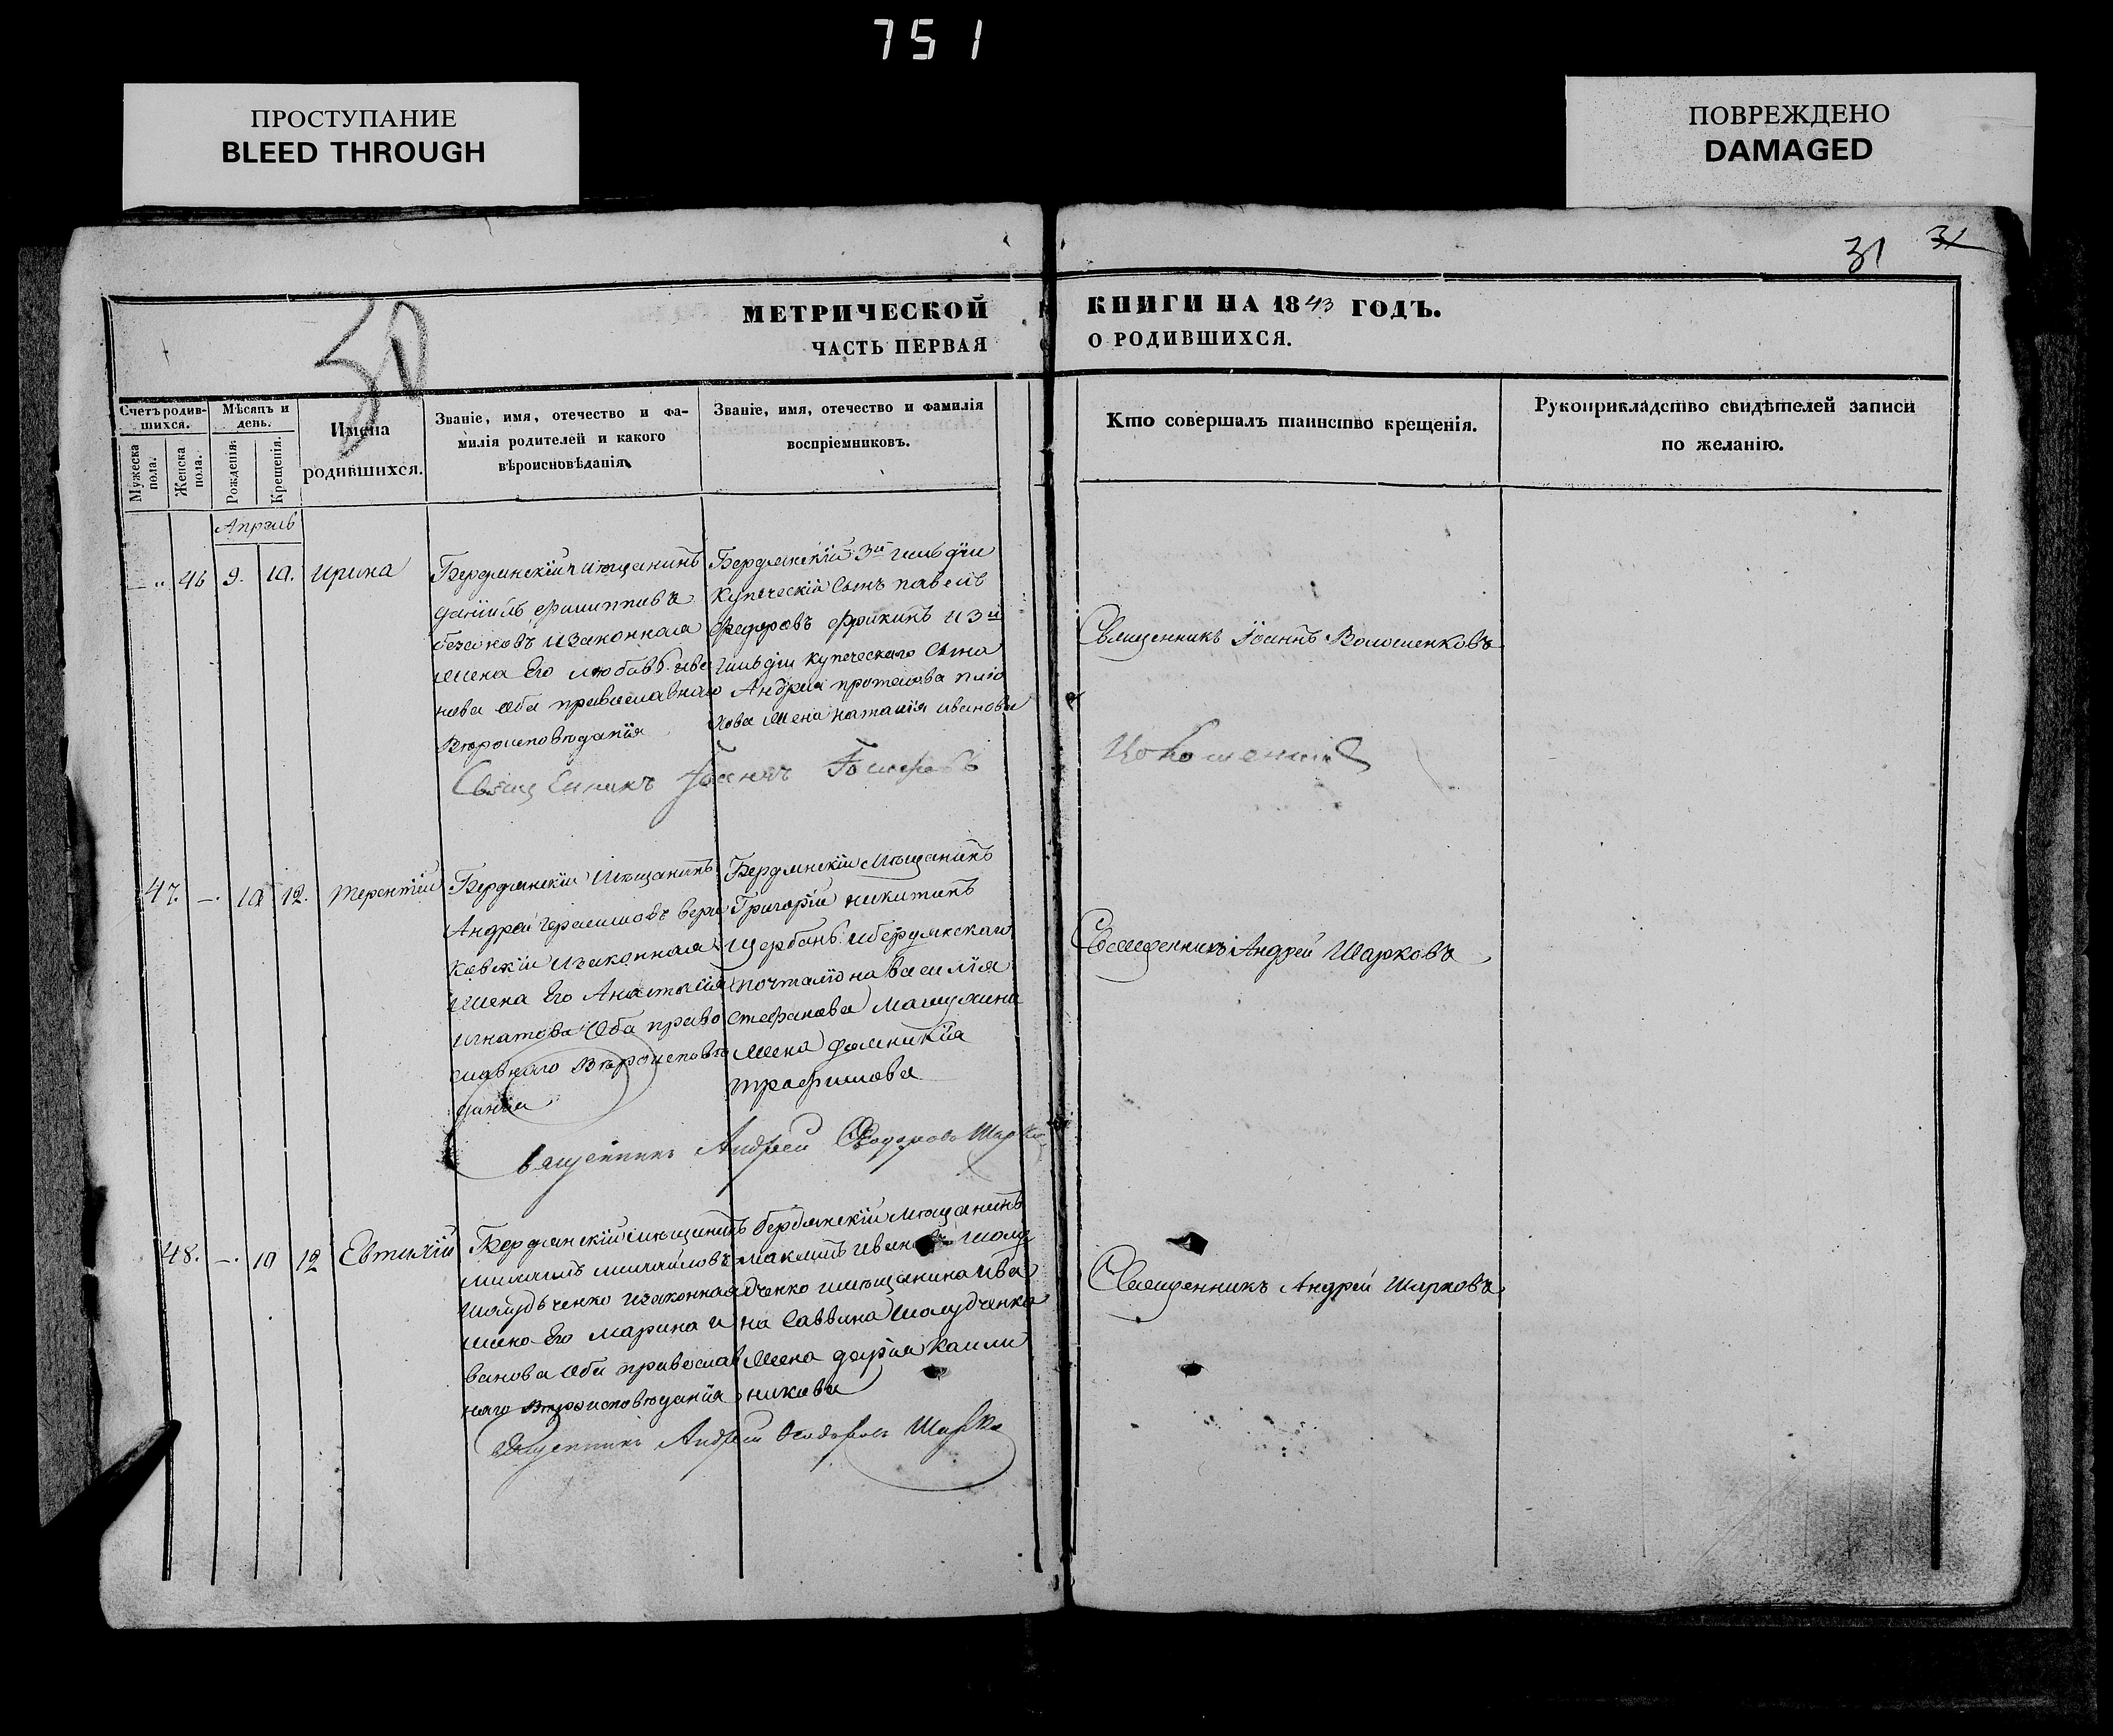 751
ПРОСТУПАНИЕ
BLEED THROUGH
ПОВРЕЖДЕНО
DAMAGED
31 31
50
МЕТРИЧЕСКОЙ КНИГИ НА 1843 ГОДЪ.
ЧАСТЬ ПЕРВАЯ О РОДИВШИХСЯ.
Счетъ родив-
шихся.
Мужеска
пола.
Женска
пола.
Мѣсяцъ и
день.
Рожденія.
Крещенія.
Имена
родившихся.
Званіе, имя, отечество и фа-
милія родителей и какого
вѣроисповѣданія.
Званіе, имя, отечество и фамилія
воспріемниковъ.
Кто совершалъ таинство крещенія.
Рукоприкладство свидѣтелей записи
по желанію.
Апрель
„ 46 9. 10. Ирина
Бердянскій мѣщанинъ
Даніилъ Филипповъ
и законная
жена Его любовь Ива
нова Оба православнаго
Вѣроисповѣданія
Бердянскій 3й гильдіи
Купеческій Сынъ павелъ
Федоровъ и 3й
гильдіи купеческаго Сына
Андрея
жена Наталія Иванова
Священникъ Іоаннъ Волошенковъ
Священникъ Іоаннъ
47. —. 10 12. Терентій
Бердянскій Мѣщанинъ
Андрей Герасимовъ Вери
ковскій и законная
жена Его Анастасія
Игнатова Оба право
славнаго Вѣроисповѣ
данія
Бердянскій Мѣщанинъ
Григорій никитинъ
Щербань и бердянскаго
почталіона Василія
Стефанова
жена домникія
трофимова
Священникъ Андрей Шарковъ
Священникъ Андрей Ѳеодоровъ Шарко
48. —. 10 12 Евтихій
Бердянскій мѣщанинъ
михаилъ михайловъ
и законная
жена Его Марина И
ванова Оба православ
наго Вѣроисповѣданія
бердянскій мѣщанинъ
максимъ Ивановъ шолу
дченко и мѣщанина Ива
на Саввина Шолудченка
Жена дарія Калли
никова
Священникъ Андрей Шарковъ
Священникъ Андрей Ѳеодоровъ Шарко